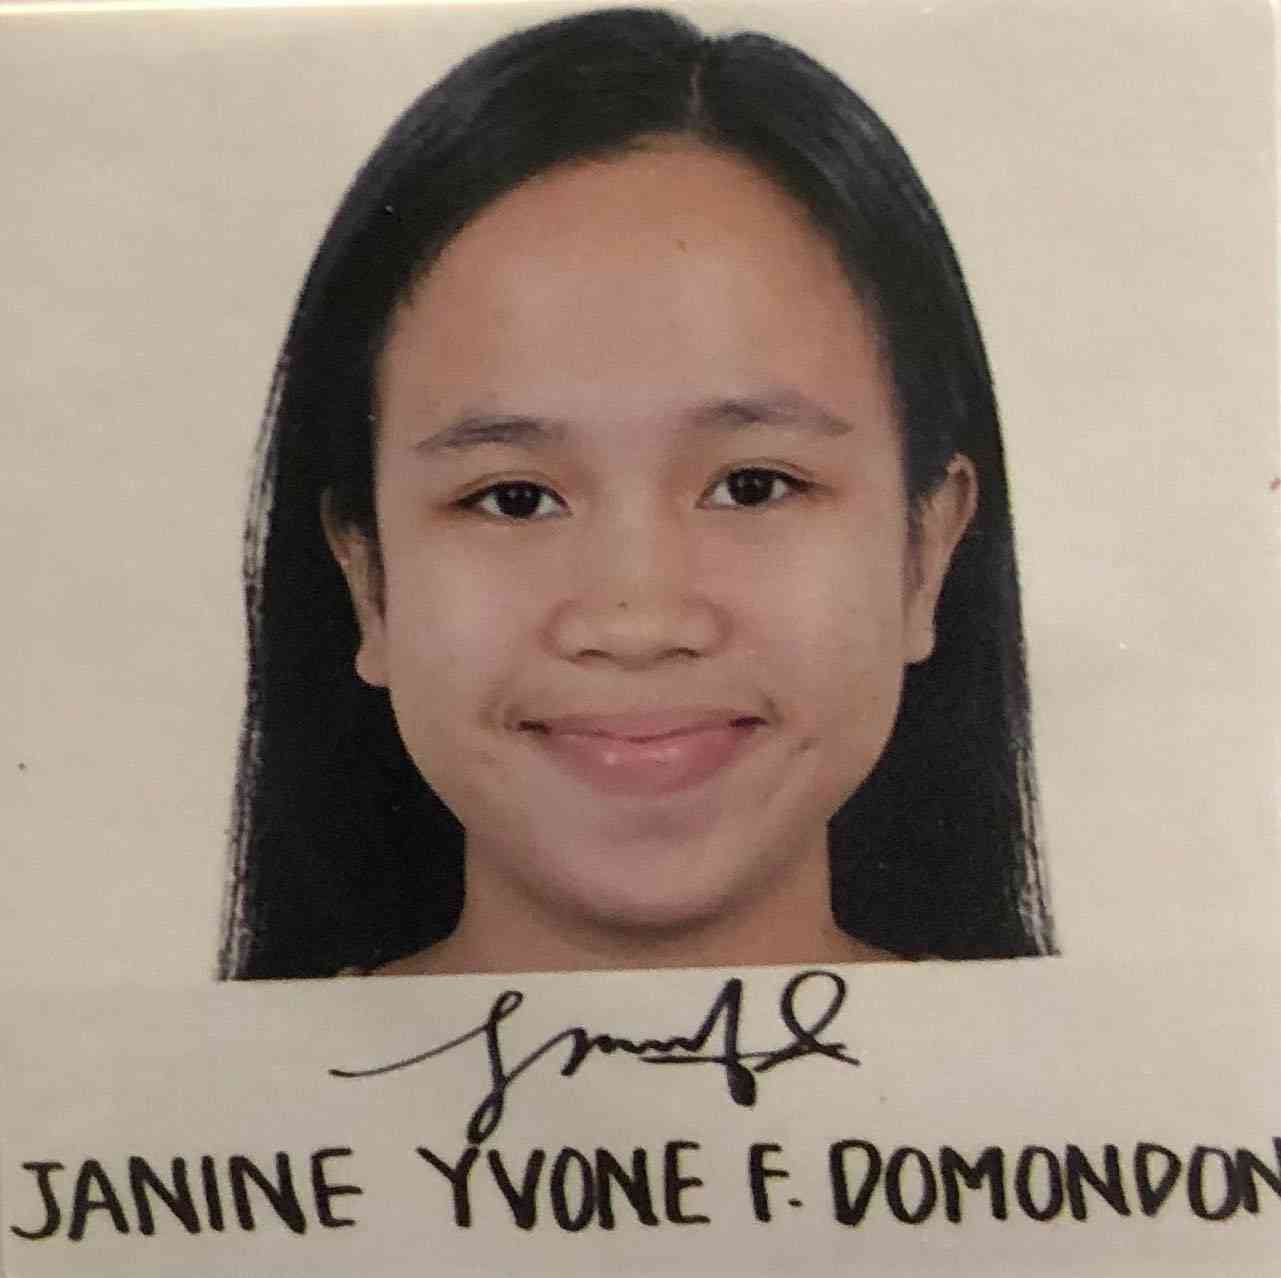 JANINE YVONE F. DOMONDON